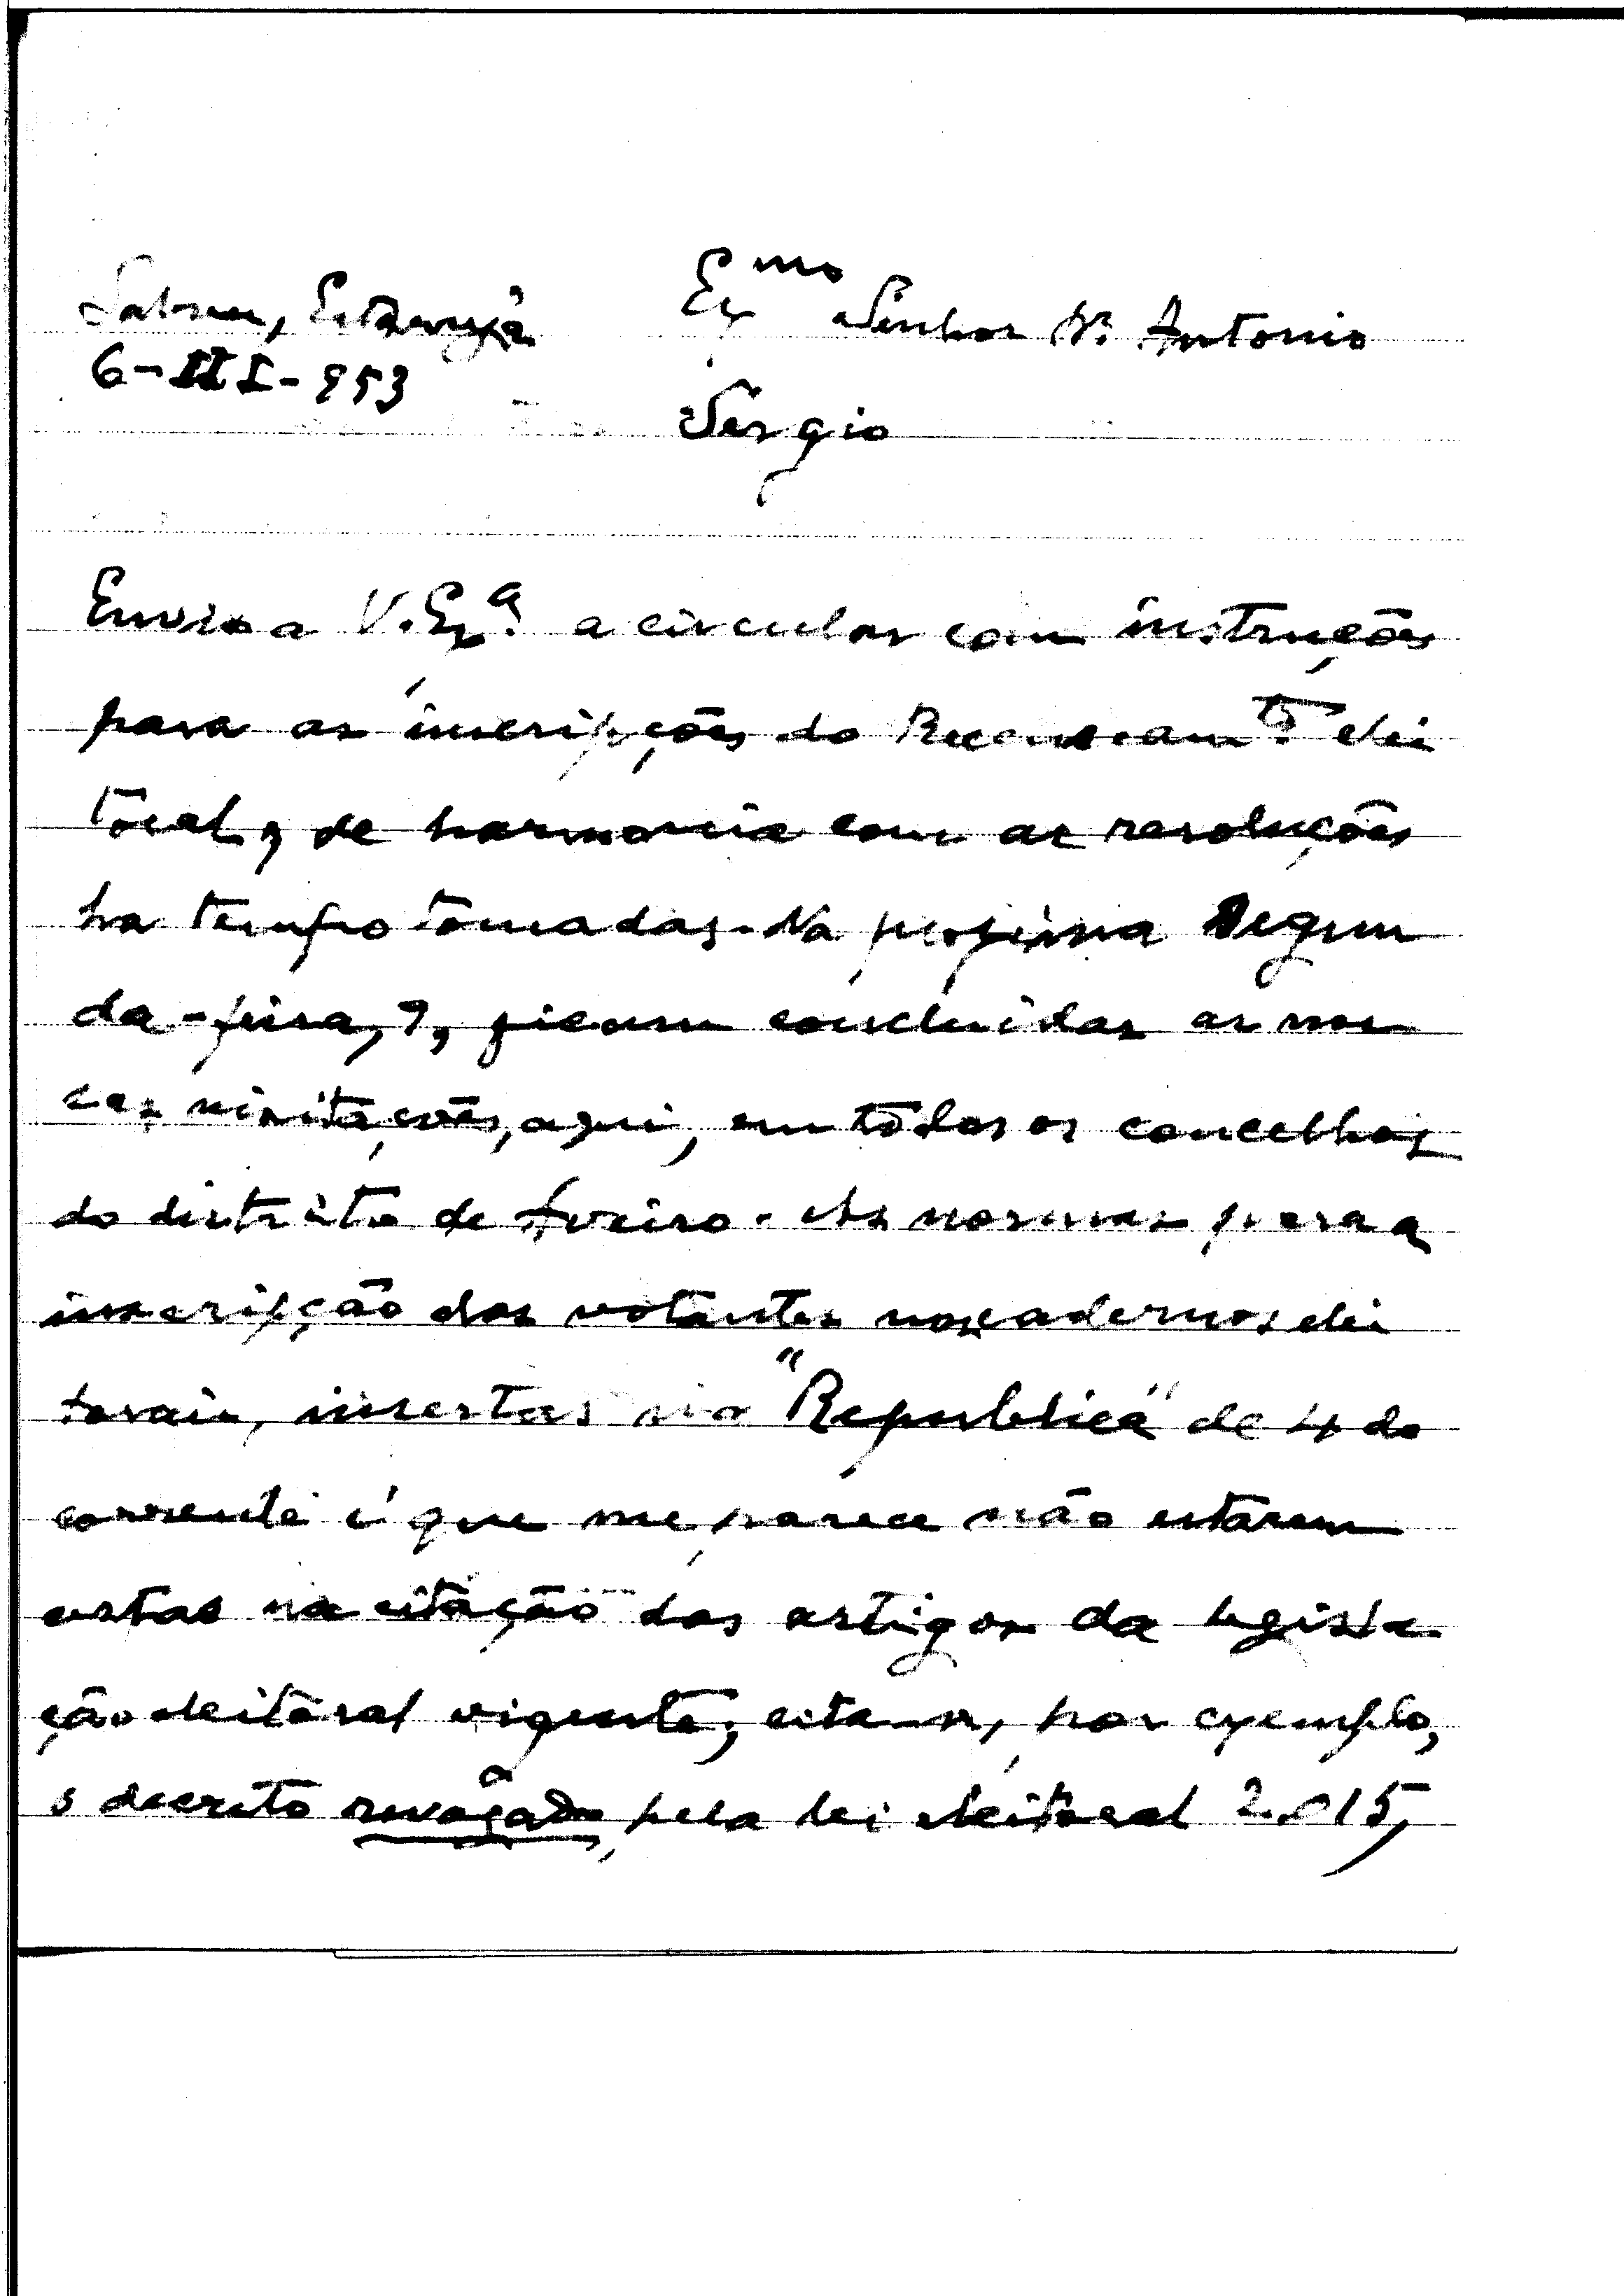 Salreu, Estarreja
6-III-953
Exmo Senhor Dr. Antonio
Sergio
Envio a V. Exª. a circular com instruções
para as inscripções do Recenseamto. elei
toral, de harmonia com as resoluções
ha tempo tomadas. Na proxima Segun
da-feira, 9, ficam concluidas as nos
sas visitações, aqui, em todos os concelhos
do distrito de Aveiro. As normas para a
inscripção dos votantes nos cadernos elei
torais, insertas na "Republica" de 4 do
corrente é que me parece não estarem
certas na citação dos artigos da legisla
ção eleitoral vigente; cita-se, por exemplo,
o decreto revogado pela lei eleitoral 2.015,